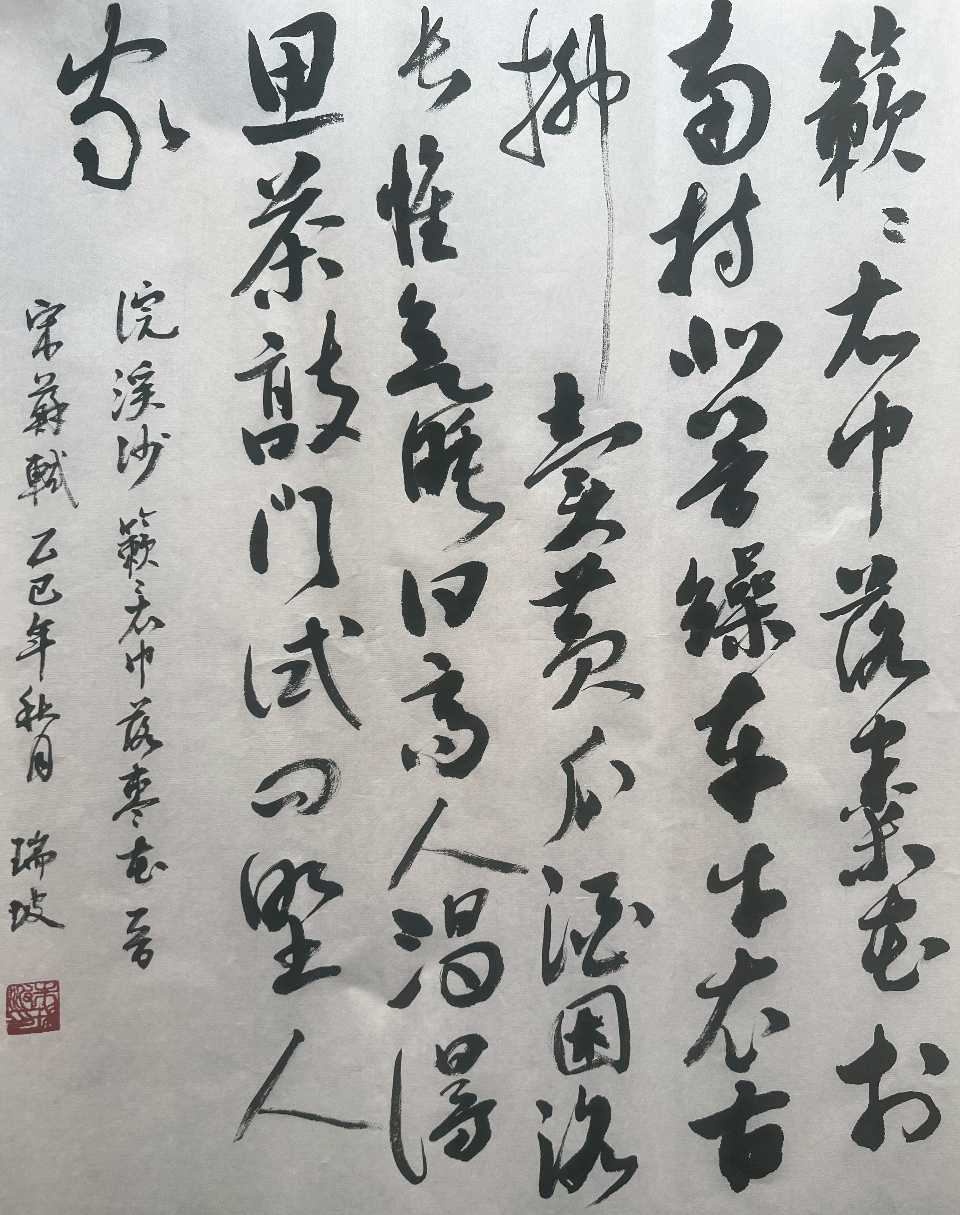 簌〻衣巾落棗花村
南村北響繰车牛衣古
柳賣黄瓜酒困路
长惟欲睡日高人渴漫
思茶敲门试问野人
家
浣溪沙 簌〻衣巾落棗花
宋蘇軾 乙巳年秋月 瑞坡